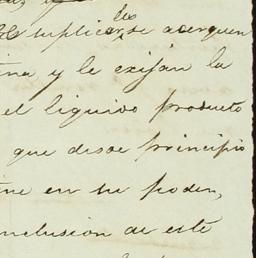 suplicar les se acerquen
y le exijan la
el liquido producto
que desde principio
en su poder,
de este